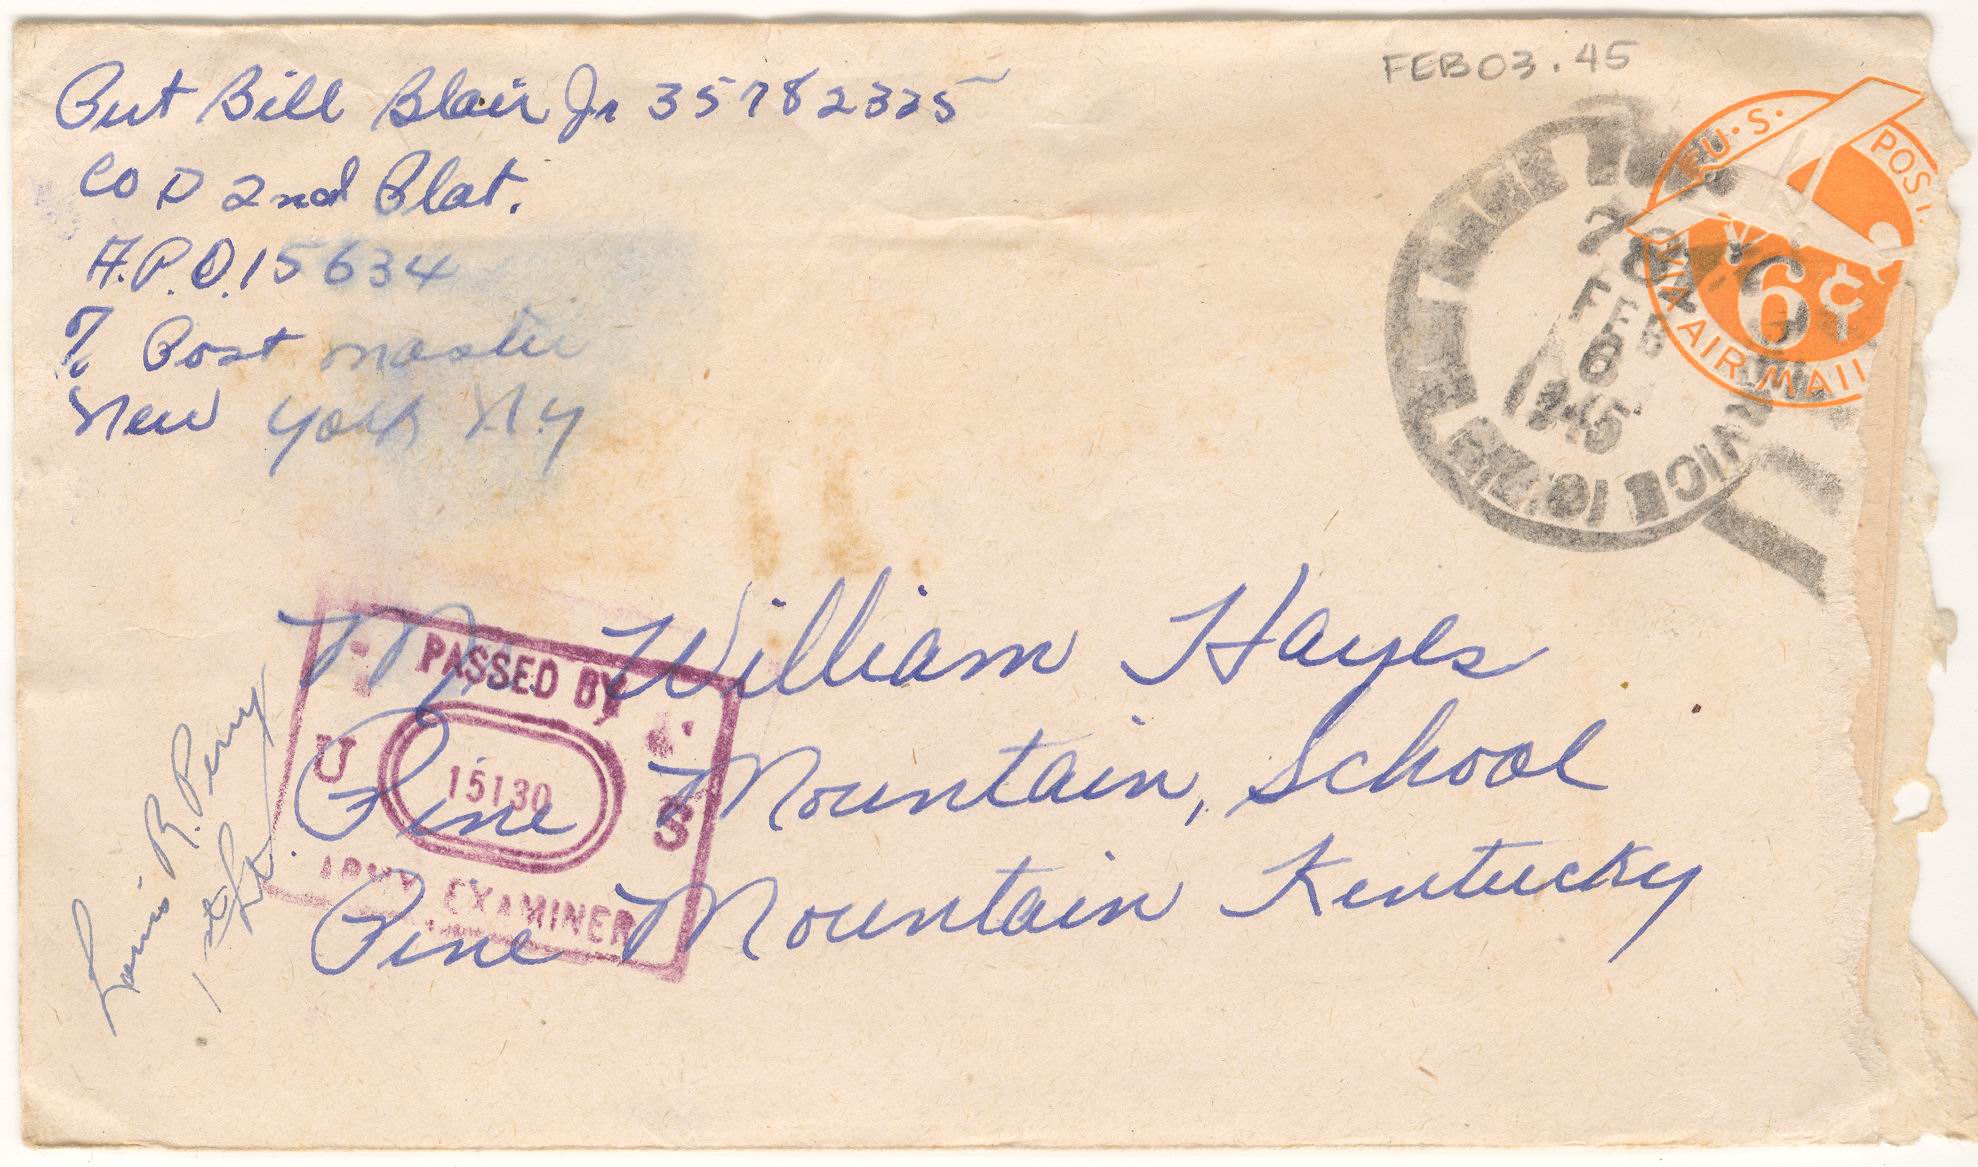 FEB 03.45
Pvt Bill Blair Jr 35782325
Co D 2nd Plat.
A.P.O. 15634
% Post master
New York N.y
U.S. POST
VIA AIR MAIL
6¢
7
FEB
8
1945
RVICE
Mr William Hayes
Pine Mountain, School
Pine Mountain Kentucky
PASSED BY
U 15130 S
ARMY EXAMINER
R. Perry
1st Lt.